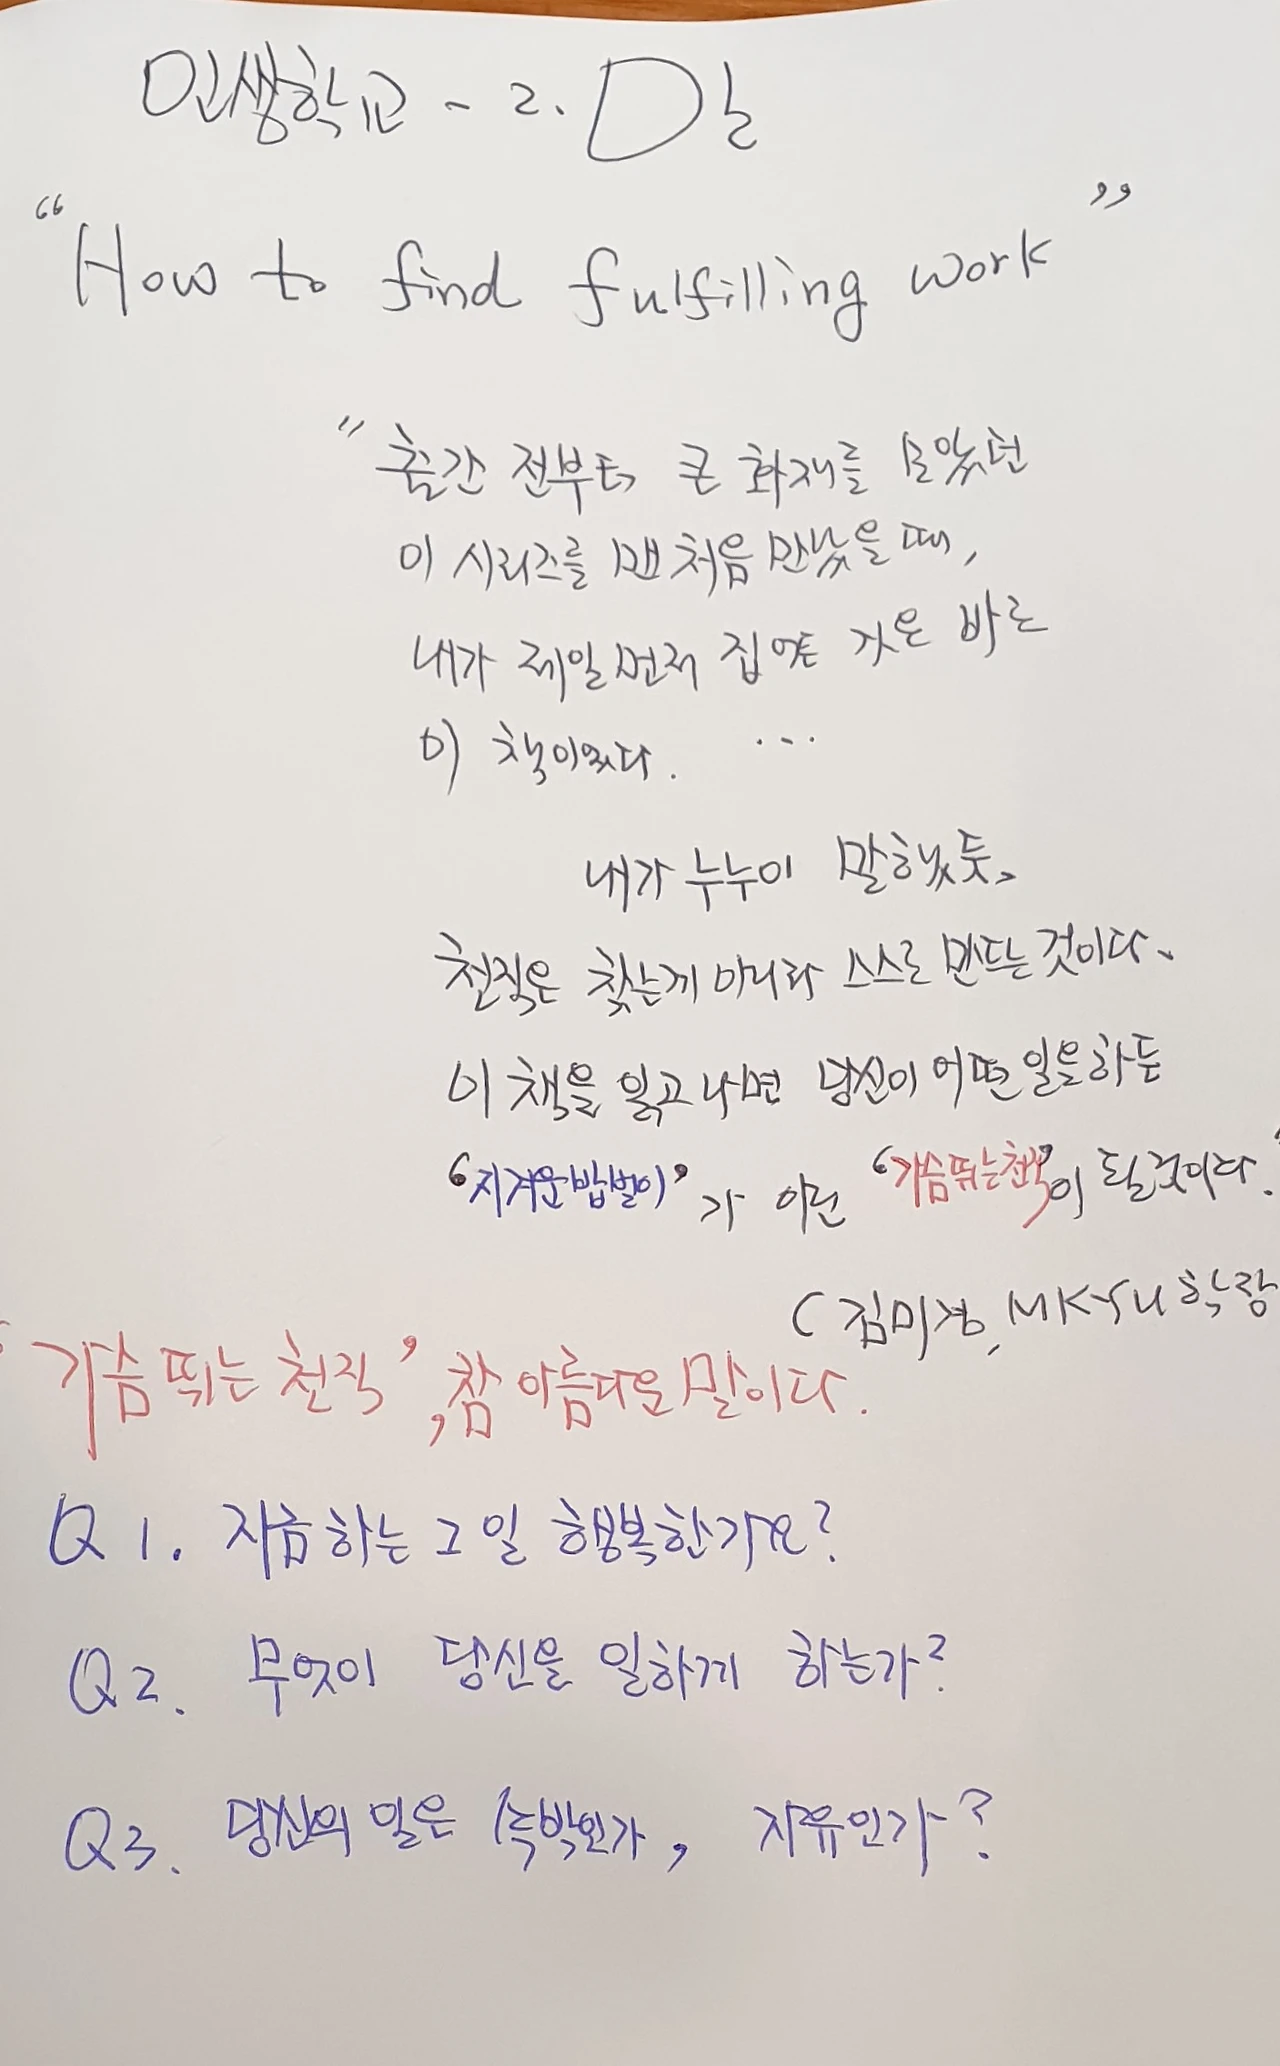 인생학교 - 2. 일
“How to find fulfilling work”
"출간 전부터 큰 화제를 모았던
이 시리즈를 맨 처음 만났을 때,
내가 제일 먼저 집어든 것은 바로
이 책이었다. ...
내가 누누이 말했듯,
천직은 찾는게 아니라 스스로 만드는 것이다.
이 책을 읽고 나면 당신이 어떤 일을 하든
‘지겨운 밥벌이’가 아닌 ‘가슴 뛰는 천직’이 될 것이다."
(김미경, MKYU 학장
‘가슴 뛰는 천직’, 참 아름다운 말이다.
Q1. 지금 하는 그 일 행복한가요?
Q2. 무엇이 당신을 일하게 하는가?
Q3. 당신의 일은 속박인가, 자유인가?